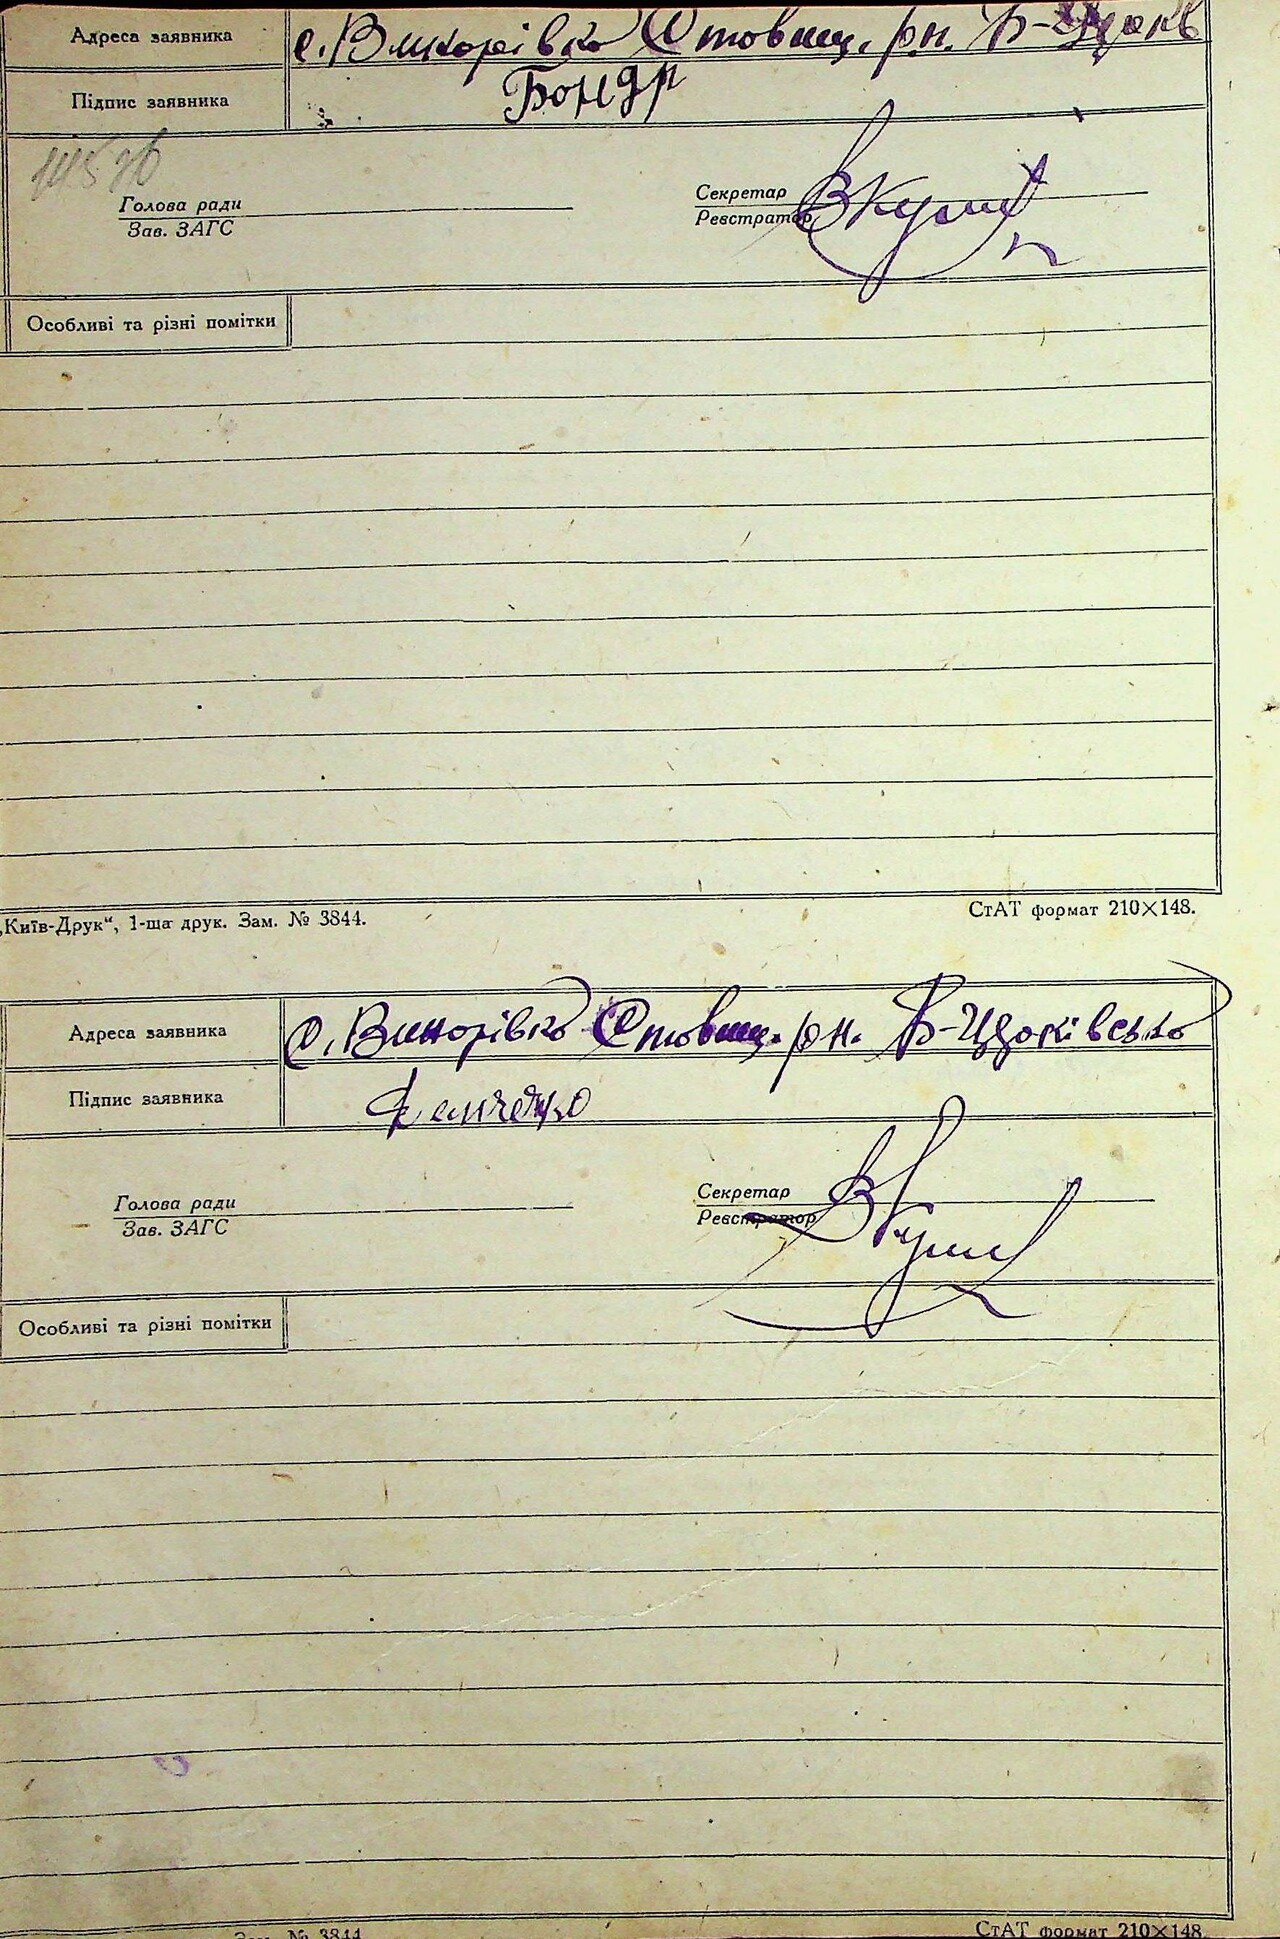 Адреса заявника с. Винорівка Ставищ. рн. Б-Ц
Підпис заявника Бондр
Голова ради
Зав. ЗАГС
Секретар
Реєстратор
Особливі та різні помітки
„Київ-Друк“, 1-ша друк. Зам. № 3844.
СтАТ формат 210×148.
Адреса заявника с. Винорівка Ставищ. рн. Б-Ц
Підпис заявника Демченко
Голова ради
Зав. ЗАГС
Секретар
Реєстратор
Особливі та різні помітки
Зам. № 3844
СтАТ формат 210×148